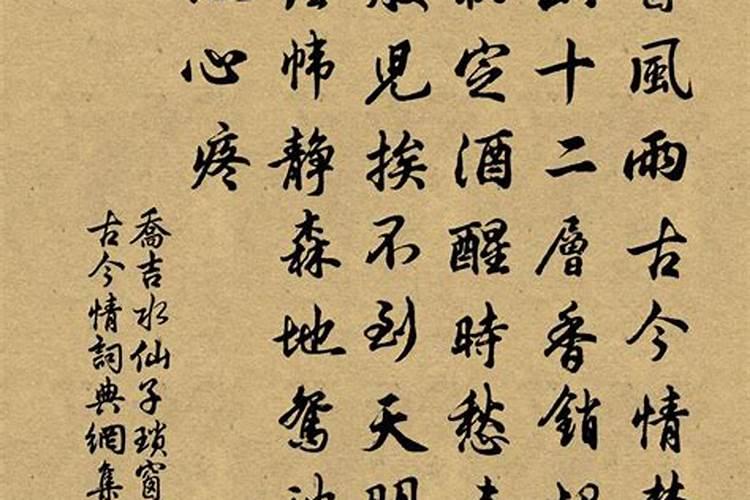 風雨古今情
十二層香銷
定酒醒時愁
児挨不到天明
幃静森地鴛
心疼
喬吉水仙子瑣窗
古今情詞典網集